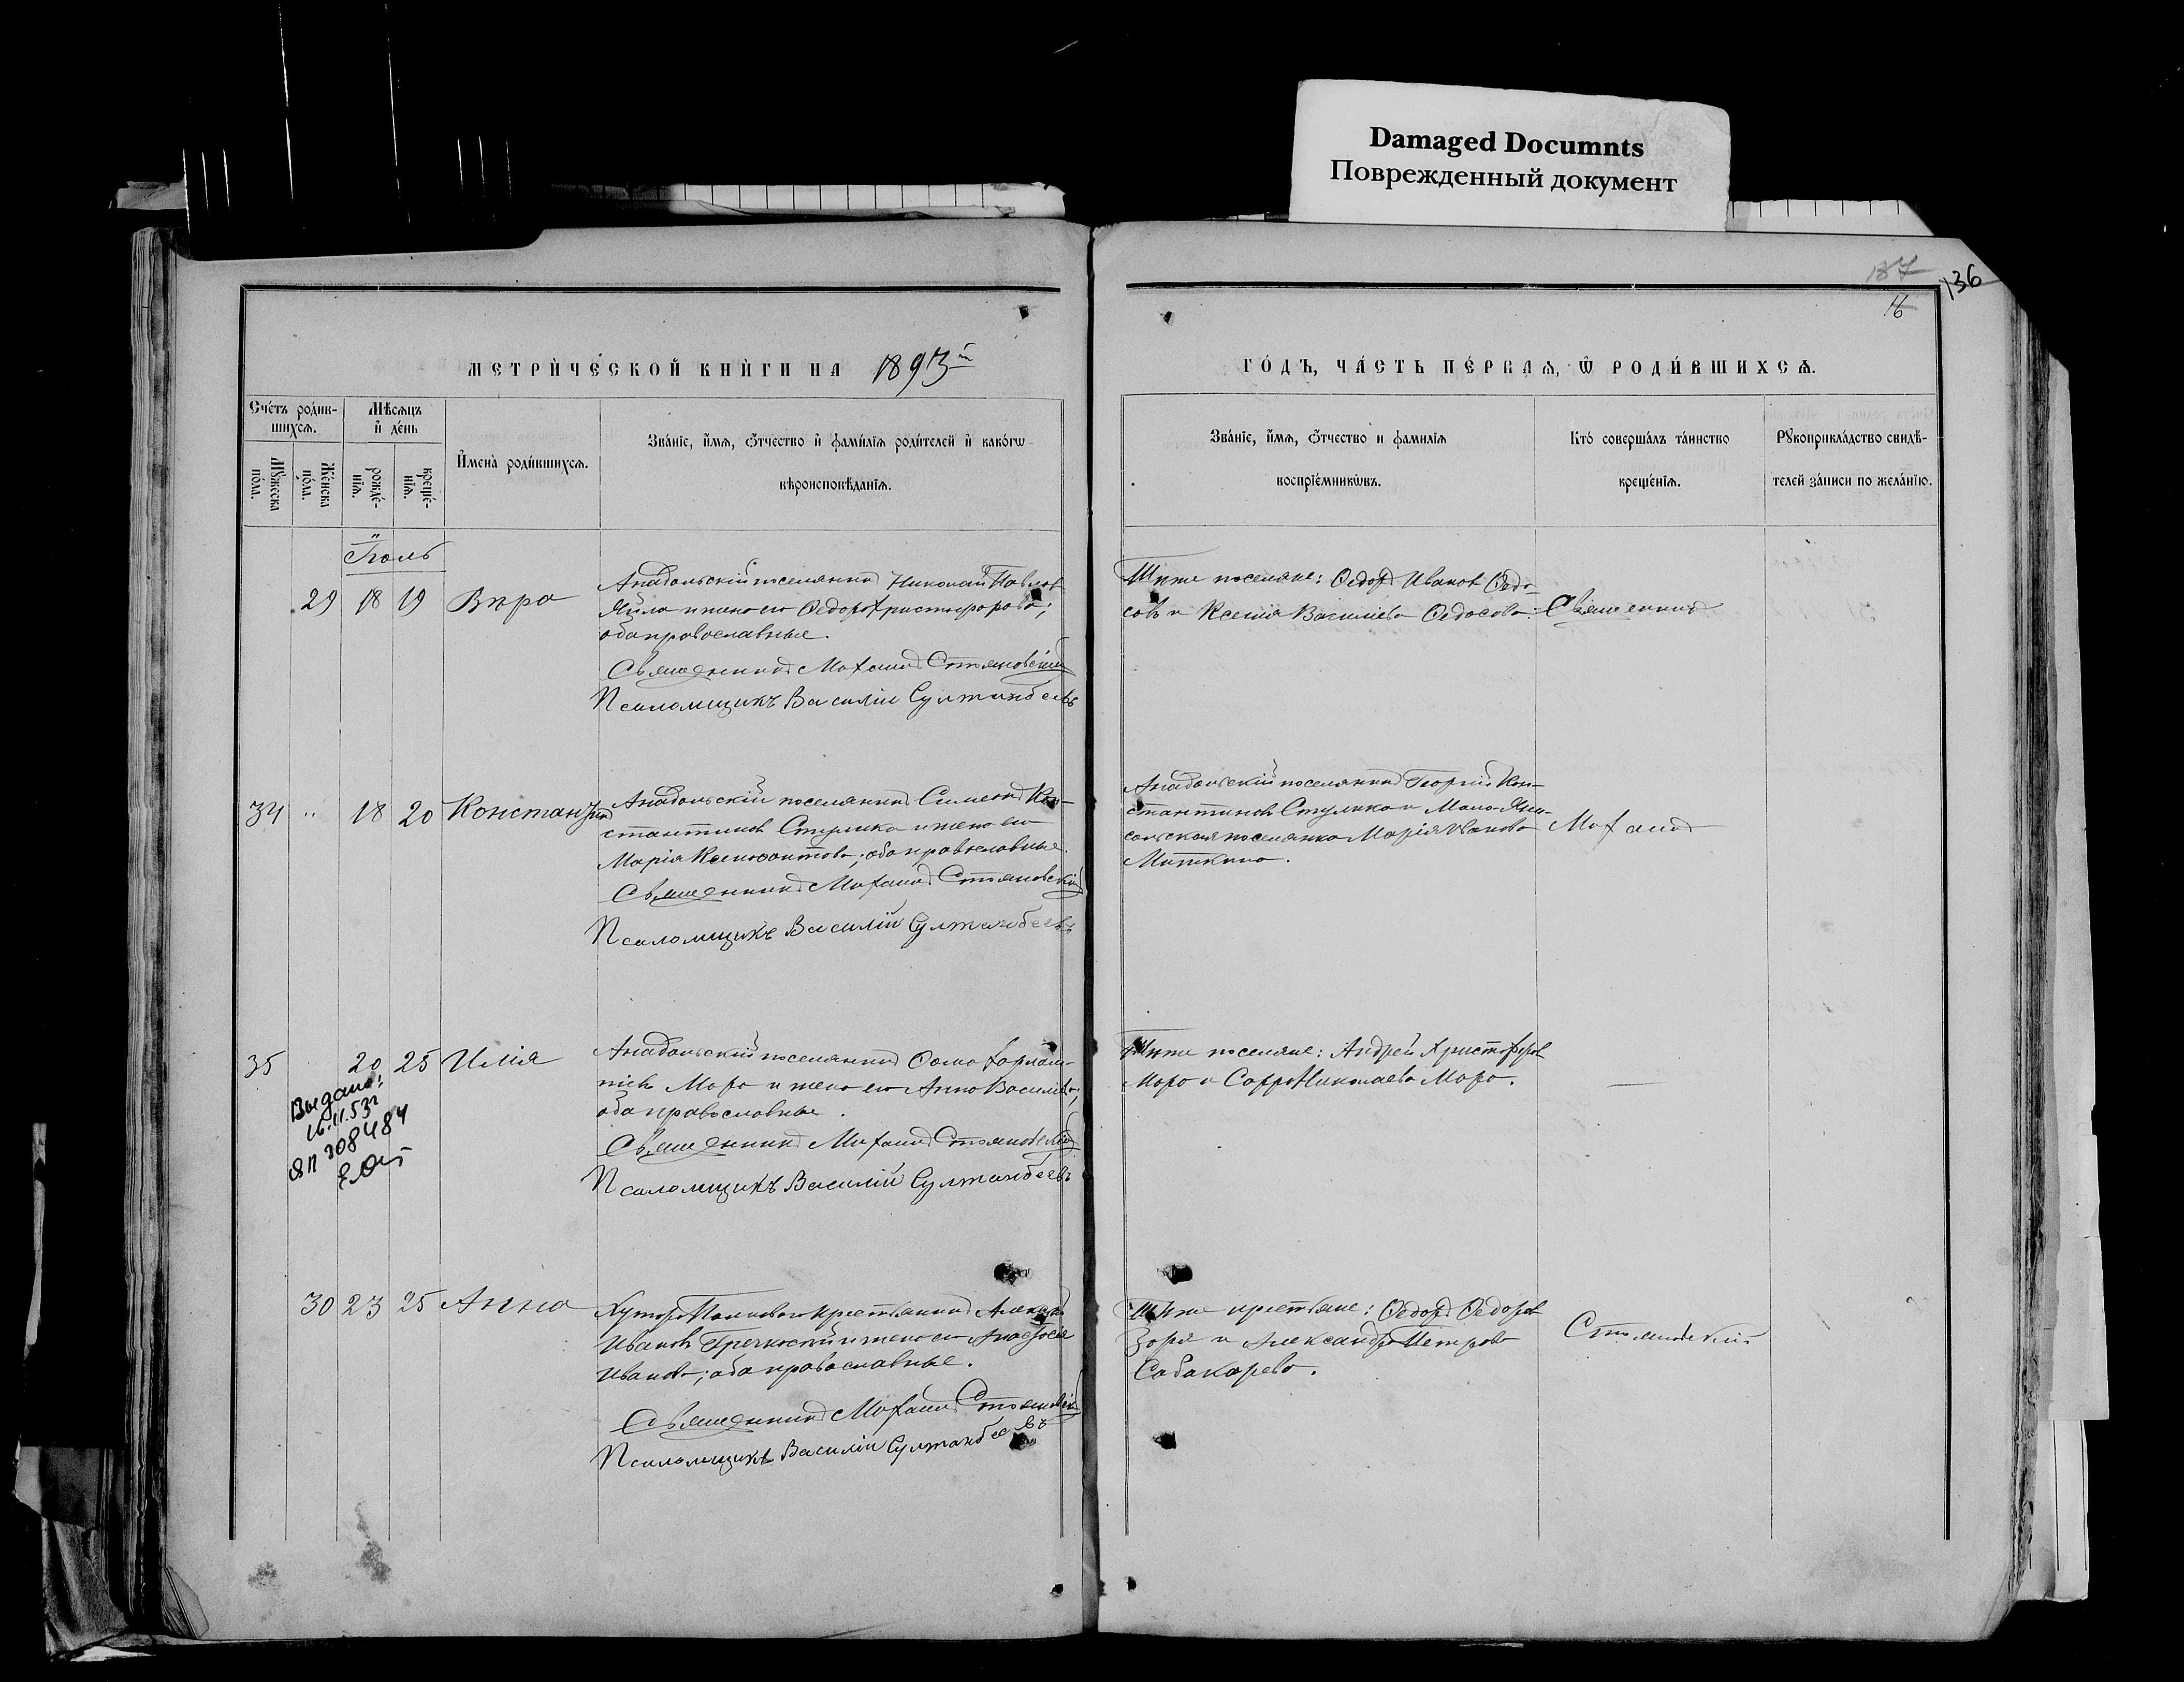 Damaged Documnts
Поврежденный документ
136
16
МЕТРИ́ЧЕСКОЙ КНИ́ГИ НА 1893й
ГО́ДЪ, ЧА́СТЬ ПЕ́РВАѦ, Ѿ РОДИ́ВШИХСѦ.
Сче́тъ роди́в-
шихсѧ.
Мѣ́сѧцъ
и҆ де́нь
Мꙋ́жеска
по́ла.
Же́нска
по́ла.
рожде́-
нїѧ.
креще́-
нїѧ.
И҆мена̀ роди́вшихсѧ.
Зва́нїе, и҆́мѧ, ѻ҆́тчество и҆ фами́лїѧ роди́телей и҆ како́гѡ
вѣроисповѣ́данїѧ.
Зва́нїе, и҆́мѧ, ѻ҆́тчество и фами́лїѧ
воспрїе́мникѡвъ.
Кто̀ соверша́лъ та́инство
креще́нїѧ.
Рꙋкоприкла́дство свидѣ́-
телей за́писи по жела́нїю.
Іюль
29 18 19 Вѣра
Анадольскій поселянинъ Николай Павлов
Яйла и жена его Ѳедора Христофорова;
оба православные.
Священникъ Михаилъ Стояновскій
Псаломщикъ Василій Султанбеевъ
Тѣже поселяне: Ѳедоръ Иванов Ѳедо-
совъ и Ксенія Васильева Ѳедосова.
Священникъ
34 " 18 20 Константинъ
Анадольскій поселянинъ Симеонъ Кон-
стантиновъ Стулика и жена его
Марія Ксенофонтова; оба православные.
Священникъ Михаилъ Стояновскій
Псаломщикъ Василій Султанбеевъ
Анадольскій поселянинъ Георгій Кон-
стантиновъ Стулика и Мало-Яни-
сольская поселянка Марія Иванова
Миткина.
Михаилъ
35 20 25 Илія
Выдано:
16.11.53г
308484
Анадольскій поселянинъ Ѳома Харлам-
піевъ Мора и жена его Анна Васильева;
оба православные.
Священникъ Михаилъ Стояновскій
Псаломщикъ Василій Султанбеевъ
Тѣже поселяне: Андрей Христофоров
Мора и Сарра Николаева Мора.
30 23 25 Анна
Хутора крестьянинъ Алексѣй
Иванов и жена его Анастасія
Иванова; оба православные.
Священникъ Михаилъ Стояновскій
Псаломщикъ Василій Султанбеевъ
Тѣже крестьяне: Ѳедоръ Ѳедоров
Зоря и Александра Петрова
Собакарева.
Стояновскій